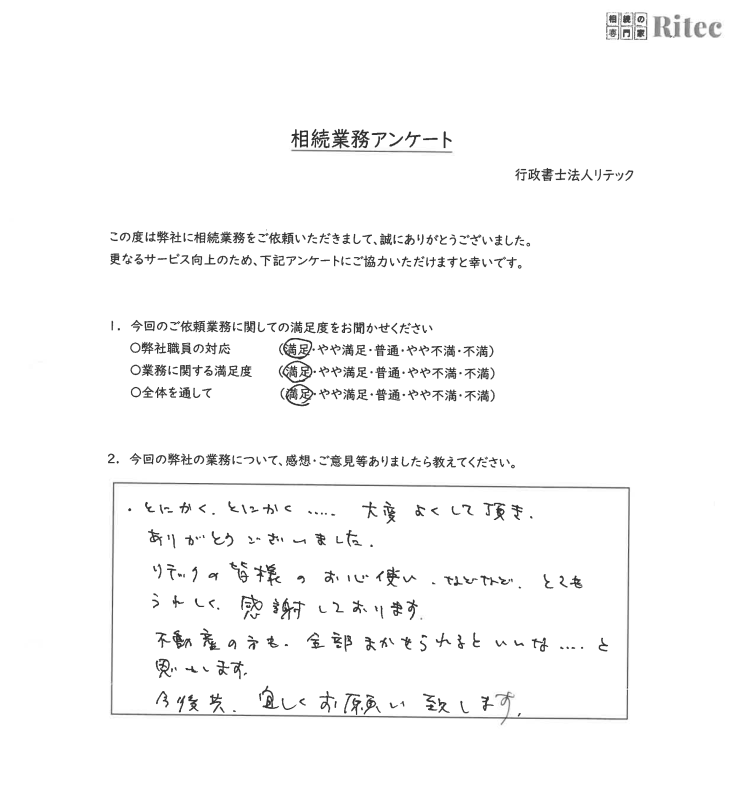 相続の
専門家
Ritec
相続業務アンケート
行政書士法人リテック
この度は弊社に相続業務をご依頼いただきまして、誠にありがとうございました。
更なるサービス向上のため、下記アンケートにご協力いただけますと幸いです。
1. 今回のご依頼業務に関しての満足度をお聞かせください
○弊社職員の対応 (満足・やや満足・普通・やや不満・不満)
○業務に関する満足度 (満足・やや満足・普通・やや不満・不満)
○全体を通して (満足・やや満足・普通・やや不満・不満)
2. 今回の弊社の業務について、感想・ご意見等ありましたら教えてください。
・とにかく、とにかく ..... 大変よくして頂き、
ありがとうございました。
リテックの皆様のお心使い、などなど、とても
うれしく、感謝しております。
不動産の方も、全部まかせられるといいな .... と
思います。
今後共、宜しくお願い致します。